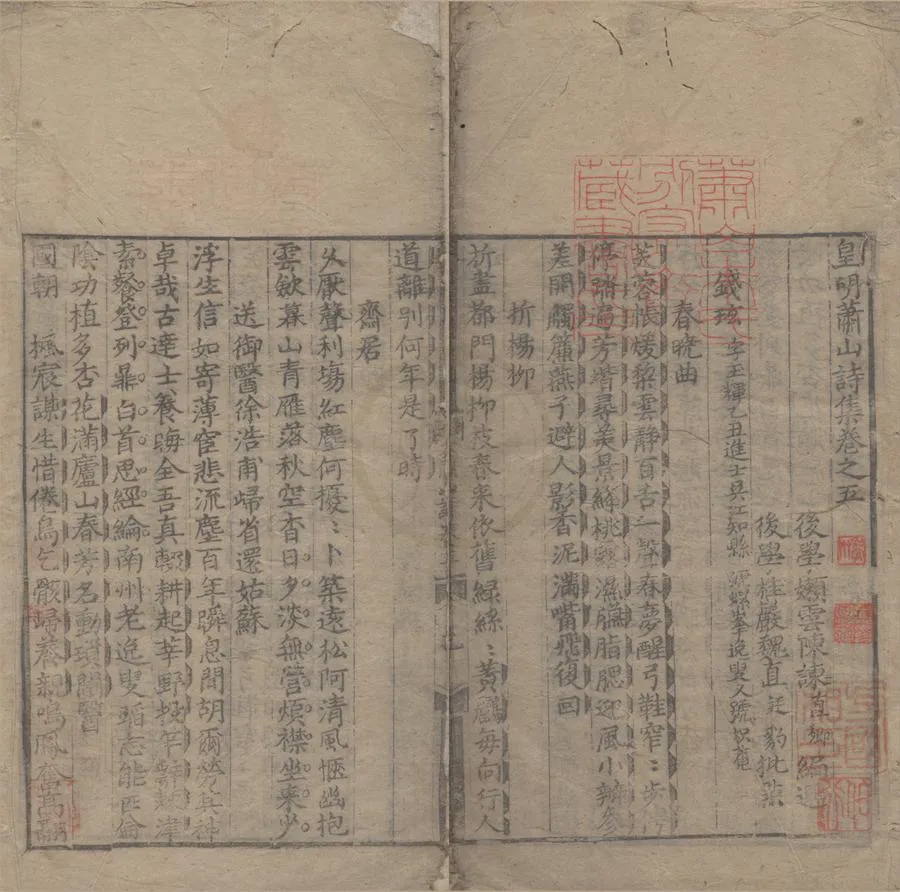 皇明蕭山詩集卷之五
後學嬾雲陳諫直卿編選
後學桂巖魏直廷豹批點
錢玹 字玉輝乙丑進士吳江知縣 峯逸叟又號坦菴
春曉曲
芙蓉帳煖梨雲靜百舌一聲春夢醒弓鞋窄〻步
過芳堦尋美景絳桃露濕臙脂腮迎風小瓣參
差開觸簾燕子避人影香泥滿嘴飛復回
折楊柳
折盡都門楊柳枝春來依舊綠絲〻黃鸝每向行人
道離別何年是了時
齋居
久厭聲利塲紅塵何擾〻卜築遠松阿清風愜幽抱
雲斂暮山青雁落秋空杳日夕淡無營煩襟坐來少
送御醫徐浩甫歸省還姑蘇
浮生信如寄薄宦悲流塵百年瞬息間胡爾勞其神
卓哉古達士養晦全吾真輟耕起莘野投竿辭渭津
素餐登列鼎白首思經綸南州老逸叟蹈志能匹倫
陰功植多杏花滿廬山春芳名動瑣闥醫
國朝 楓宸謀生惜倦鳥乞骸歸養親鳴鳳